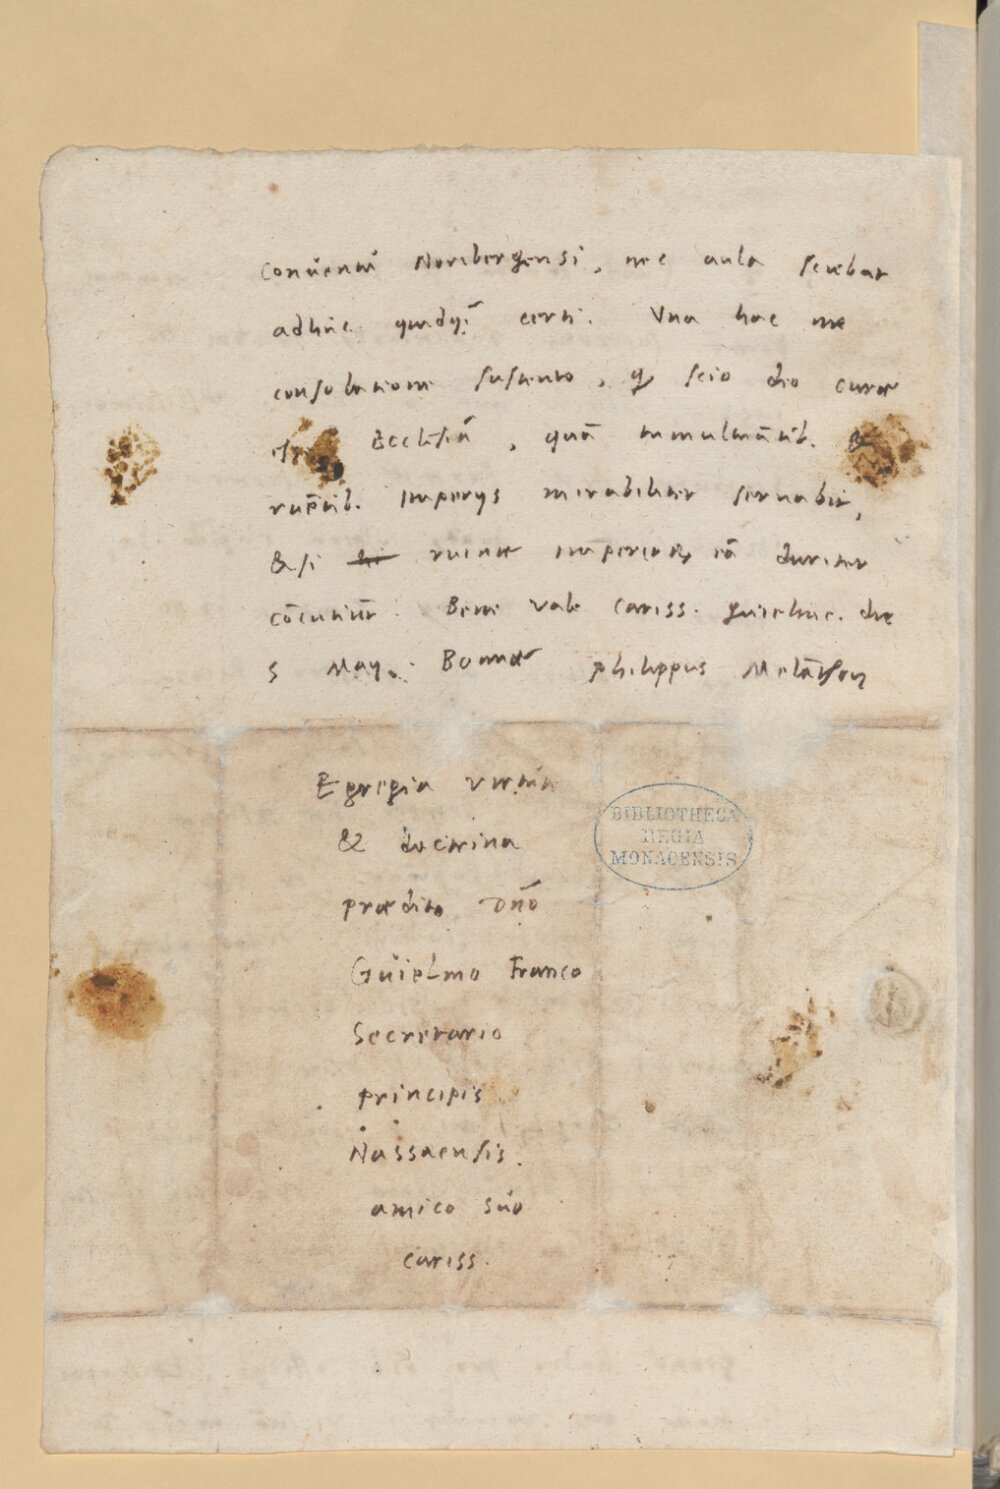 conuentu Noribergensi, nec aula sciebat
adhuc quidq̃ certi. Vna hac me
consolatione sustento, q scio deo curæ
Ecclesiā, quā tumultuātib. &
ruētib. Imperijs mirabiliter seruabit,
& si ruinæ imperiorū eā duriter
cōcutiūt. Bene vale cariss. guielme. die
5 May. Bonnæ philippus Melāthon
Egregia virtute
& doctrina
prædito Dño
Guielmo Franco
Secretario
principis
Nassaensis.
amico suo
cariss.
BIBLIOTHECA
REGIA
MONACENSIS